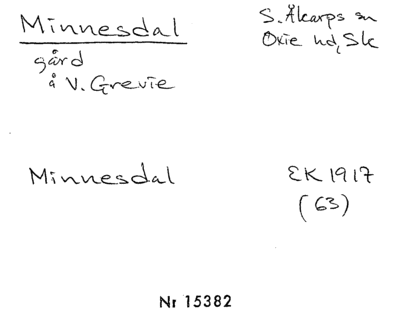 Minnesdal
S. Åkarps sn
Oxie hd, Sk
gård
å V. Grevie
Minnesdal
EK 1917
(63)
Nr 15382